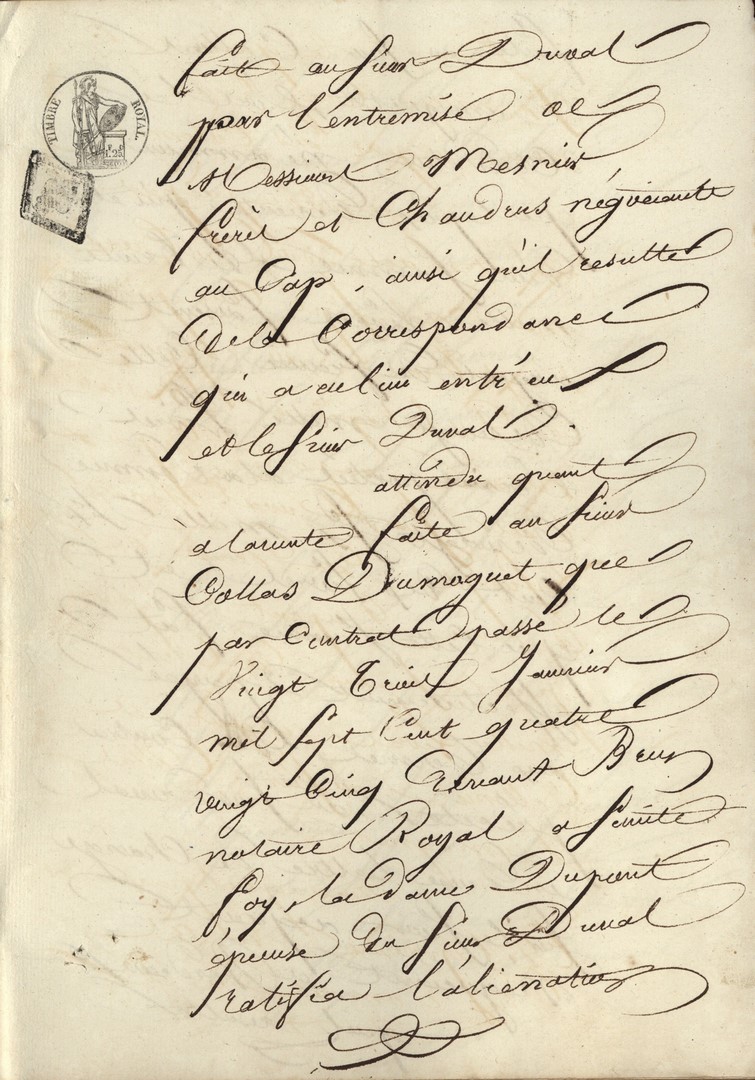 TIMBRE ROYAL
fait au sieur Duval
par l'entremise de
Messieurs Mesnier
frères et Chaudrus négociants
au Cap, ainsi qu'il resulte
de la Correspondance
qui a eu lieu entr'eux
et le sieur Duval.
attendu quant
a la vente faite au sieur
Collas Dumaquet que
par Contrat passé le
Vingt Trois Janvier
mil sept Cent quatre
vingt Cinq devant Brun
notaire Royal a Sainte
foy, la dame Dupont
épouse du sieur Duval
ratifia l'alienation